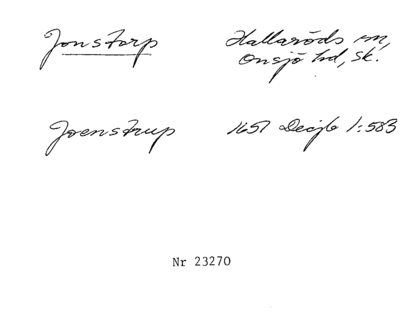 Jonstorp Hallaröds sn,
Onsjö hd, Sk.
Joenstrup 1651 Decjb 1:583
Nr 23270